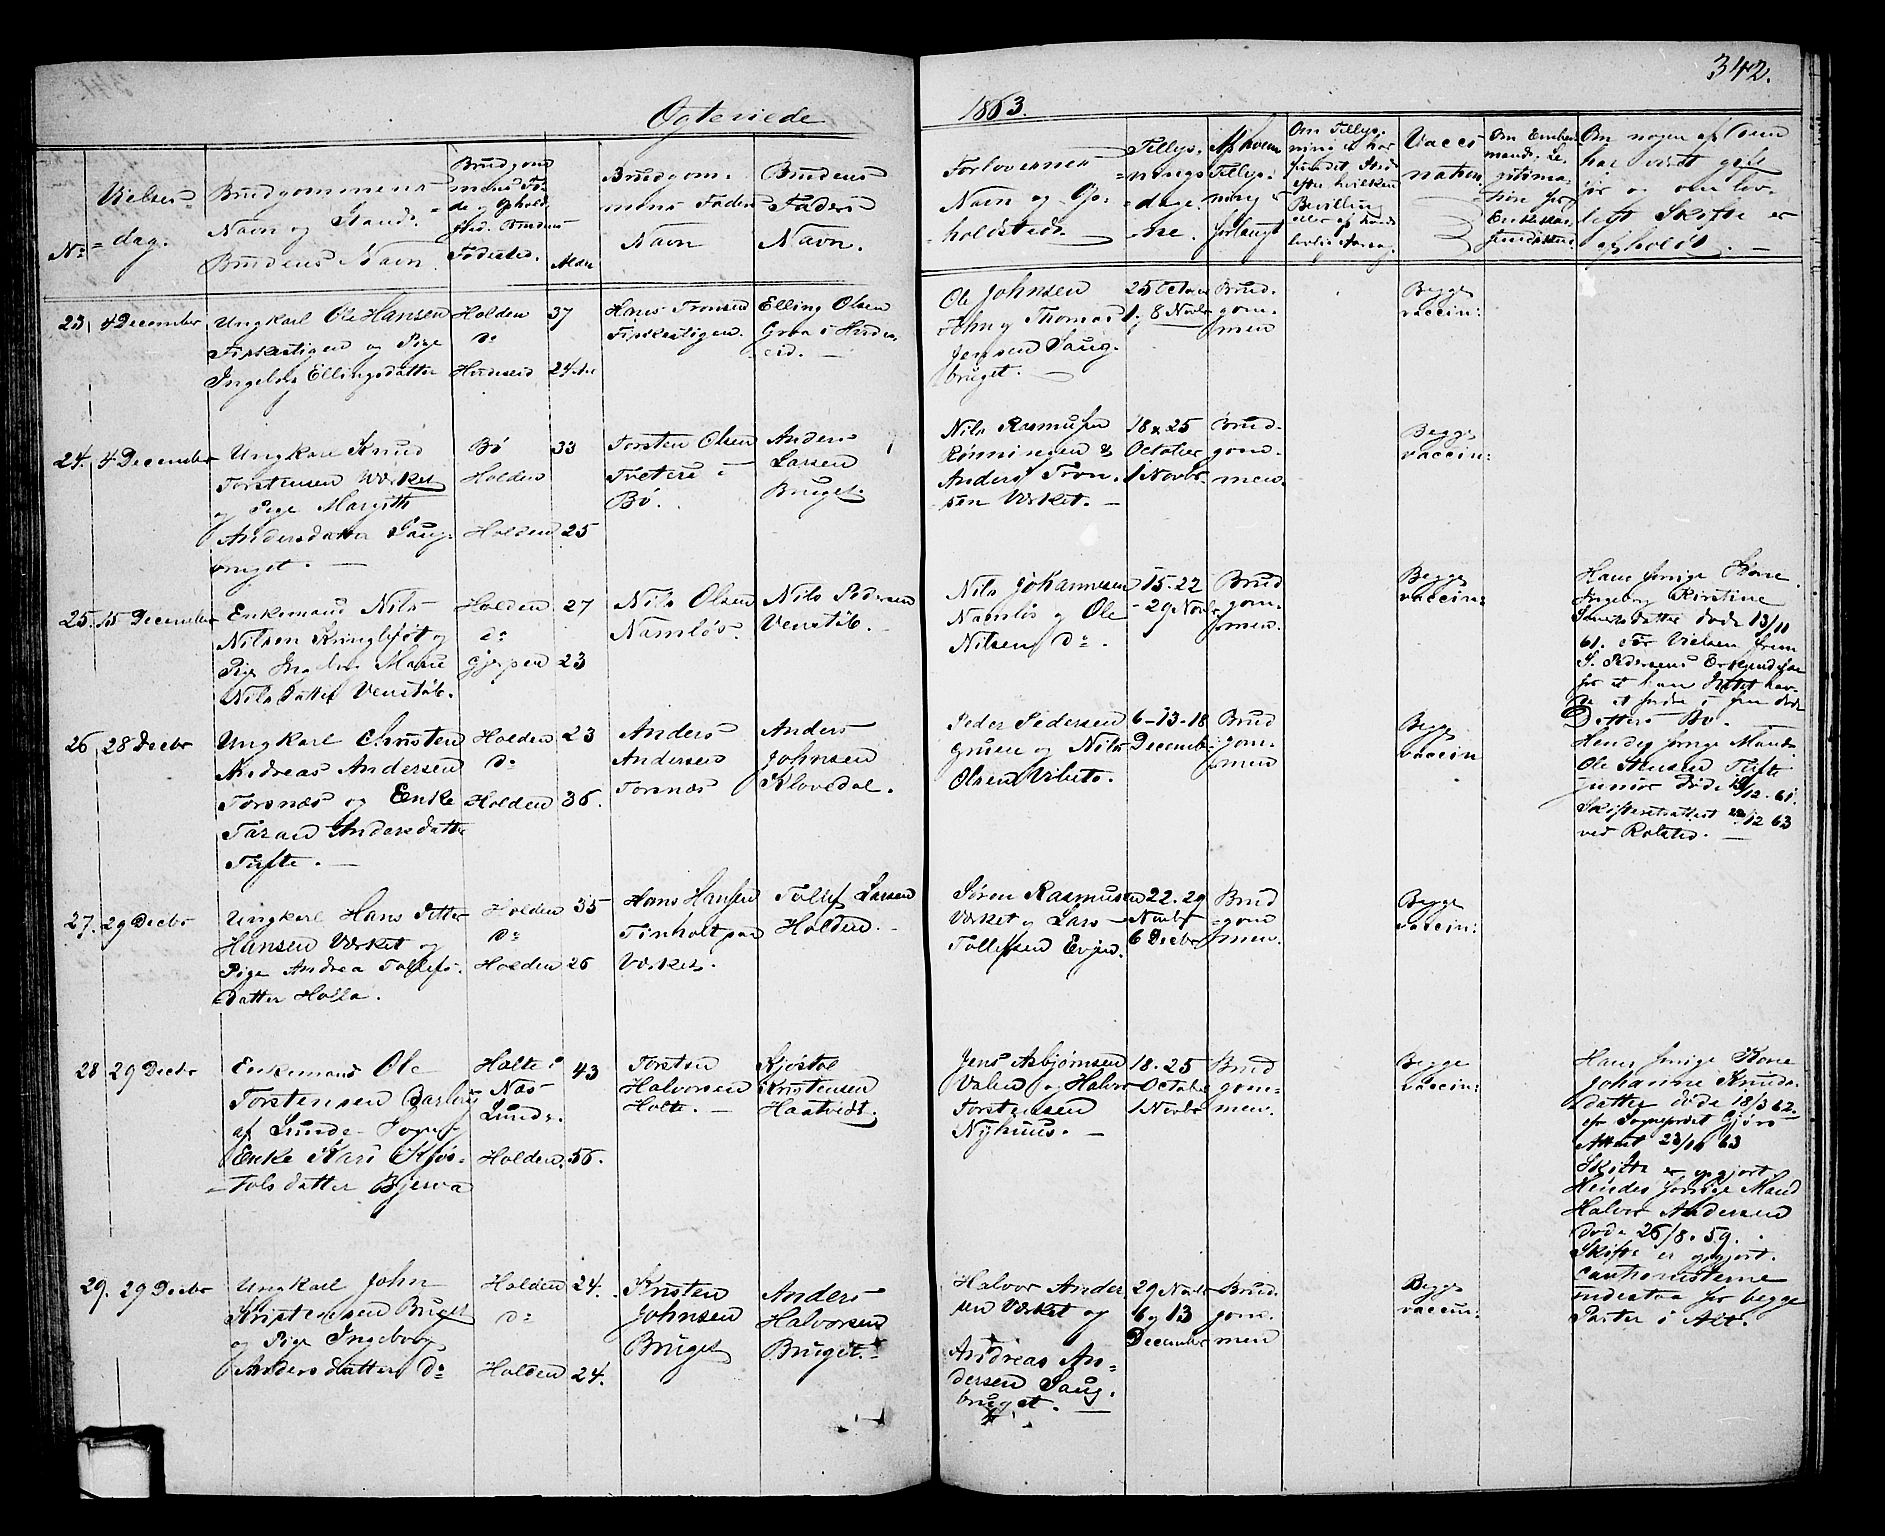 342.
Ægteviede
1863.
No
Vielses-
dag.
Brudgommens
Navn og Stand.
Brudens Navn
Alder
Brudgom-
mens Faders
Navn
Brudens
Faders
Navn.
Forlovernes
Navn og Op-
holdsted.
Tillys-
nings
dage-
ne.
Af hvem
Tillys-
ning er
forlangt
Vacci
nation
Om nogen af dem
har været gift
før og om lov-
ligt Skifte er
afholdt.
23, 4 December
Ungkarl Ole Hansen
Fiskestigen og Pige
Ingeborg Ellingsdatter
Holden
do
Hudseid
37
24
Hans Tronsen
Fiskestigen.
Elling Olsen
Graa i Hudse
eid.
Ole Johnsen
og Thomas
Jensen Saug-
bruget.
25 October
1, 8 Novbr
Brud-
gom-
men
Begge
vaccin:
24. 4 December
Ungkarl Knud
Torstensen Værket
og Pige Margith
Andersdatter Saug-
bruget.
Bö
Holden
Holden
33
25
Torsten Olsen
Tveteie i
Bö.
Anders
Larsen
Bruget.
Nils Rasmusen
Rönningen &
Anders Tron-
sen Værket.
18 & 25
October
1 Novbr
Brud-
gom-
men.
Begge
vaccin:
25. 15 December
Enkemand Nils
Nilsen Kringlefot og
Pige Maria
Nilsdatter Venstöb.
Holden
do
Gjerpen
27
23
Nils Olsen
Namlös.
Nils Pedersen
Venstöb.
Nils Johannesen
Namlös og Ole
Nilsen do.
15. 22
29 Novbr
Brud
gom-
men.
Begge
vaccin:
Hans forrige Kone
Ingeborg Kirstine
döde 13/11
61. Før Vielsen frem
S. Pedersens Erkjendelse
for at han Intet hav-
de at fordre i
Datters Bo.
26 28 Decbr
Ungkarl Christen
Andreas Andersen
Torsnæs og Enke
Taran Andersdatter
Tufte.
Holden
do
Holden
23
36.
Anders
Andersen
Torsnæs
Anders
Johnsen
Klovedal.
Peder Pedersen
Gruen og Nils
Olsen Vibeto.
6-13-18
December
Brud
gom-
men
Begge
vaccin
Hendes forrige Mand
Ole Hansen Tufte
junior döde 12. 61.
Skifteattest 12 63
ved Rolsted.
27. 29 Decbr
Ungkarl Hans Petter
Hansen Værket og
Pige Andrea Tollefs-
datter Holla.
Holden
do
Holden
35
26
Hans Hansen
Tinholt paa
Værket.
Tollef Larsen
Holden.
Sören Rasmusen
Værket og Lars
Tollefsen Evju.
22. 29
Novbr
6 Decbr
Brud
gom
men.
Begge
vaccin:
28 29 Decbr
Enkemand Ole
Torstensen
af Lunde Sogn og
Enke Kari Kjös-
tolsdatter Bjerva
Holte i
Næs
Lunde.
Holden.
43
56.
Torsten
Halvorsen
Holte.
Kjöstol
Kristensen
Haatvedt.
Jens Asbjörnsen
Valen og Halvor
Torstensen
Nyhuus.
18. 25
Octobr
1 Novbr
Brud
gom-
men.
Begge
vaccin:
Hans forrige Kone
Johanne Knuds-
datter döde 18/3 62.
efr Sognepræst Gjörs
Attest 23/10 63
Skifte er opgjort
Hendes forrige Mand
Halvor Andersen
döde 26/8. 59.
Skifte er opgjort.
Cautionisterne
indestaa for begge
Parter i Alt.
29. 29 Decbr
Ungkarl John
Kristensen Bruget
og Pige Ingeborg
Andersdatter do
Holden
do
Holden
24.
24.
Kristen
Johnsen
Bruget
Anders
Halvorsen
Bruget.
Halvor Ander
sen Værket og
Andreas An-
dersen Saug-
bruget.
29 Novbr
6 og 13
December
Brud-
gom-
men
Begge
vaccin: